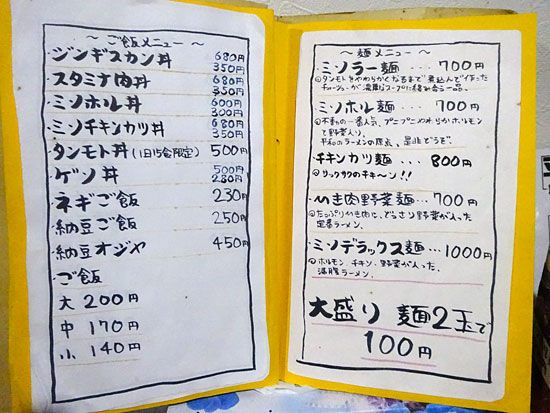 ～ ご飯メニュー ～
・ジンギスカン丼 680円
350円
・スタミナ肉丼 680円
350円
・ミソホル丼 600円
300円
・ミソチキンカツ丼 680円
350円
・タンモト丼(1日15食限定) 500円
・ゲソ丼 500円
280円
・ネギご飯 230円
・納豆ご飯 250円
・納豆オジヤ 450円
・ご飯
大 200円
中 170円
小 140円
～ 麺メニュー ～
・ミソラー麺 ・・・ 700円
タンモトをやわらかくなるまで煮込んで作った
チャーシューが濃厚なスープに絡み合う一品。
・ミソホル麺 ・・・ 700円
不動の一番人気、プニプニやわらかホルモン
と野菜入り。
平和のラーメンの原点、是非どうぞ。
・チキンカツ麺 ・・・ 800円
サックサクのチキ〜ン!!
・いき肉野菜麺・・・700円
たっぷりいき肉に、どっさり野菜が入った
定番ラーメン。
・ミソデラックス麺・・・1000円
ホルモン、チキン、野菜が入った、
満腹ラーメン。
大盛り 麺2玉で
100円